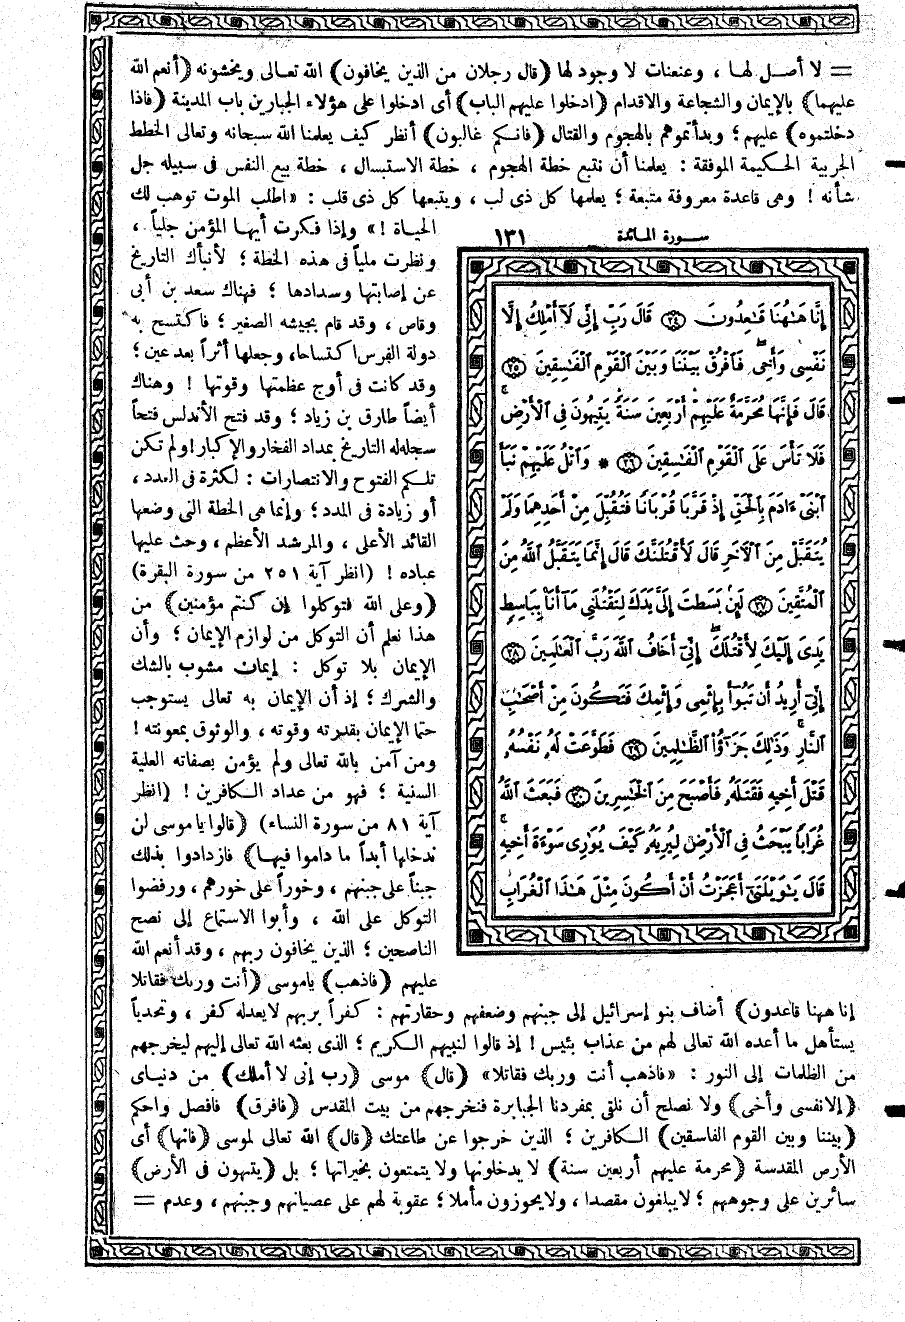 = لا أصل لها ، وعنعنات لا وجود لها (قال رجلان من الذين يخافون) الله تعالى ويخشونه (أنعم الله
عليهما) بالإيمان والشجاعة والاقدام (ادخلوا عليهم الباب) أى ادخلوا على هؤلاء الجبارين باب المدينة (فاذا
دخلتموه) عليهم ؛ وبدأتموهم بالهجوم والقتال (فانكم غالبون) أنظر كيف يعلمنا الله سبحانه وتعالى الخطط
الحربية الحكيمة الموفقة : يعلمنا أن نتبع خطة الهجوم ، خطة الاستبسال ، خطة بيع النفس فى سبيله جل
شأنه ! وهى قاعدة معروفة متبعة ؛ يعلمها كل ذى لب ، ويتبعها كل ذى قلب : «اطلب الموت توهب لك
الحياة !» وإذا فكرت أيها المؤمن جلياً ،
ونظرت ملياً فى هذه الخطة ؛ لأنبأك التاريخ
عن إصابتها وسدادها ؛ فهناك سعد بن أبى
وقاص ، وقد قام بجيشه الصغير ؛ فاكتسح به
دولة الفرس اكتساحا، وجعلها أثراً بعد عين ؛
وقد كانت فى أوج عظمتها وقوتها ! وهناك
أيضاً طارق بن زياد ؛ وقد فتح الأندلس فتحاً
سجله له التاريخ بمداد الفخار والإكبار! ولم تكن
تلكم الفتوح والانتصارات : لكثرة فى العدد ،
أو زيادة فى المدد ؛ وإنما هى الخطة التى وضعها
القائد الأعلى ، والمرشد الأعظم ، وحث عليها
عباده ! (انظر آية ٢٥١ من سورة البقرة)
(وعلى الله فتوكلوا إن كنتم مؤمنين) من
هذا نعلم أن التوكل من لوازم الإيمان ؛ وأن
الإيمان بلا توكل : إيمان مشوب بالشك
والشرك ؛ إذ أن الإيمان به تعالى يستوجب
حتما الإيمان بقدرته وقوته ، والوثوق بمعونته !
ومن آمن بالله تعالى ولم يؤمن بصفاته العلية
السنية ؛ فهو من عداد الكافرين ! (انظر
آية ٨١ من سورة النساء) (قالوا يا موسى لن
ندخلها أبداً ما داموا فيها) فازدادوا بذلك
جبناً على جبنهم ، وخوراً على خورهم ، ورفضوا
التوكل على الله ، وأبوا الاستماع إلى نصح
الناصحين ؛ الذين يخافون ربهم ، وقد أنعم الله
عليهم (فاذهب) ياموسى (أنت وربك فقاتلا
سورة المائدة ١٣١
إِنَّا هَٰهُنَا قَٰعِدُونَ ٢٤ قَالَ رَبِّ إِنِّى لَآ أَمْلِكُ إِلَّا
نَفْسِى وَأَخِى فَٱفْرُقْ بَيْنَنَا وَبَيْنَ ٱلْقَوْمِ ٱلْفَٰسِقِينَ ٢٥
قَالَ فَإِنَّهَا مُحَرَّمَةٌ عَلَيْهِمْ أَرْبَعِينَ سَنَةً يَتِيهُونَ فِى ٱلْأَرْضِ
فَلَا تَأْسَ عَلَى ٱلْقَوْمِ ٱلْفَٰسِقِينَ ٢٦ * وَٱتْلُ عَلَيْهِمْ نَبَأَ
ٱبْنَىْ ءَادَمَ بِٱلْحَقِّ إِذْ قَرَّبَا قُرْبَانًا فَتُقُبِّلَ مِنْ أَحَدِهِمَا وَلَمْ
يُتَقَبَّلْ مِنَ ٱلْآخَرِ قَالَ لَأَقْتُلَنَّكَ قَالَ إِنَّمَا يَتَقَبَّلُ ٱللَّهُ مِنَ
ٱلْمُتَّقِينَ ٢٧ لَئِنۢ بَسَطتَ إِلَىَّ يَدَكَ لِتَقْتُلَنِى مَآ أَنَا۠ بِبَاسِطٍ
يَدِىَ إِلَيْكَ لِأَقْتُلَكَ إِنِّىٓ أَخَافُ ٱللَّهَ رَبَّ ٱلْعَٰلَمِينَ ٢٨
إِنِّىٓ أُرِيدُ أَن تَبُوٓأَ بِإِثْمِى وَإِثْمِكَ فَتَكُونَ مِنْ أَصْحَٰبِ
ٱلنَّارِ وَذَٰلِكَ جَزَٰٓؤُا۟ ٱلظَّٰلِمِينَ ٢٩ فَطَوَّعَتْ لَهُۥ نَفْسُهُۥ
قَتْلَ أَخِيهِ فَقَتَلَهُۥ فَأَصْبَحَ مِنَ ٱلْخَٰسِرِينَ ٣٠ فَبَعَثَ ٱللَّهُ
غُرَابًا يَبْحَثُ فِى ٱلْأَرْضِ لِيُرِيَهُۥ كَيْفَ يُوَٰرِى سَوْءَةَ أَخِيهِ
قَالَ يَٰوَيْلَتَىٰٓ أَعَجَزْتُ أَنْ أَكُونَ مِثْلَ هَٰذَا ٱلْغُرَابِ
إنا ههنا قاعدون) أضاف بنو إسرائيل إلى جبنهم وضعفهم وحقارتهم : كفراً بربهم لايعدله كفر ، وتحدياً
يستأهل ما أعده الله تعالى لهم من عذاب بئيس ! إذ قالوا لنبيهم الكريم ؛ الذى بعثه الله تعالى إليهم ليخرجهم
من الظلمات إلى النور : «فاذهب أنت وربك فقاتلا» (قال) موسى (رب إنى لا أملك) من دنياى
(إلا نفسى وأخى) ولا نصلح أن نلقى بمفردنا الجبابرة فنخرجهم من بيت المقدس (فافرق) فافصل واحكم
(بيننا وبين القوم الفاسقين) الكافرين ؛ الذين خرجوا عن طاعتك (قال) الله تعالى لموسى (فانها) أى
الأرض المقدسة (محرمة عليهم أربعين سنة) لا يدخلونها ولا يتمتعون بخيراتها ؛ بل (يتيهون فى الأرض)
سائرين على وجوههم ؛ لايبلغون مقصدا ، ولايحوزون مأملا ؛ عقوبة لهم على عصيانهم وجبنهم ، وعدم =